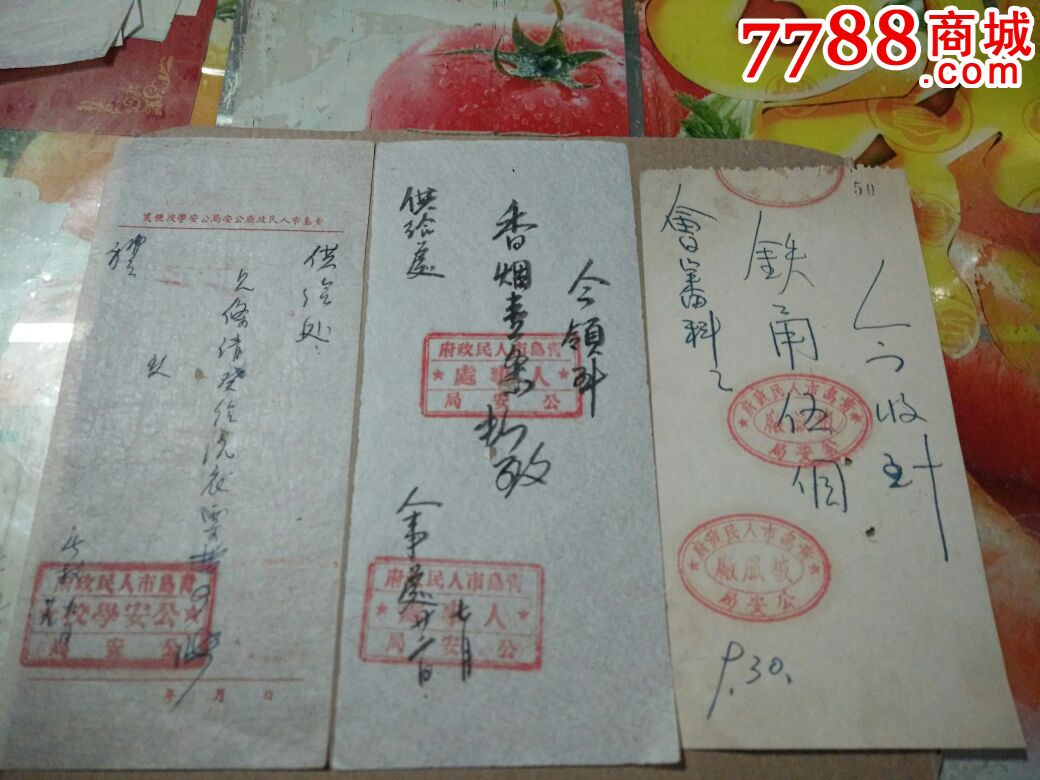 7788商城
.com
青島市人民政府公安局公安學校便箋
供给处:
兄條請發给洗衣
青島市人民政府
公安學校
公安局
年 月 日
今領到
香烟壹条
此致
供給處
青島市人民政府
人事處
公安局
人事處
七月
廿一日
青島市人民政府
人事處
公安局
50
今收到
鉄甬伍個
會審科
青島市人民政府
被服廠
公安局
青島市人民政府
被服廠
公安局
9.30.